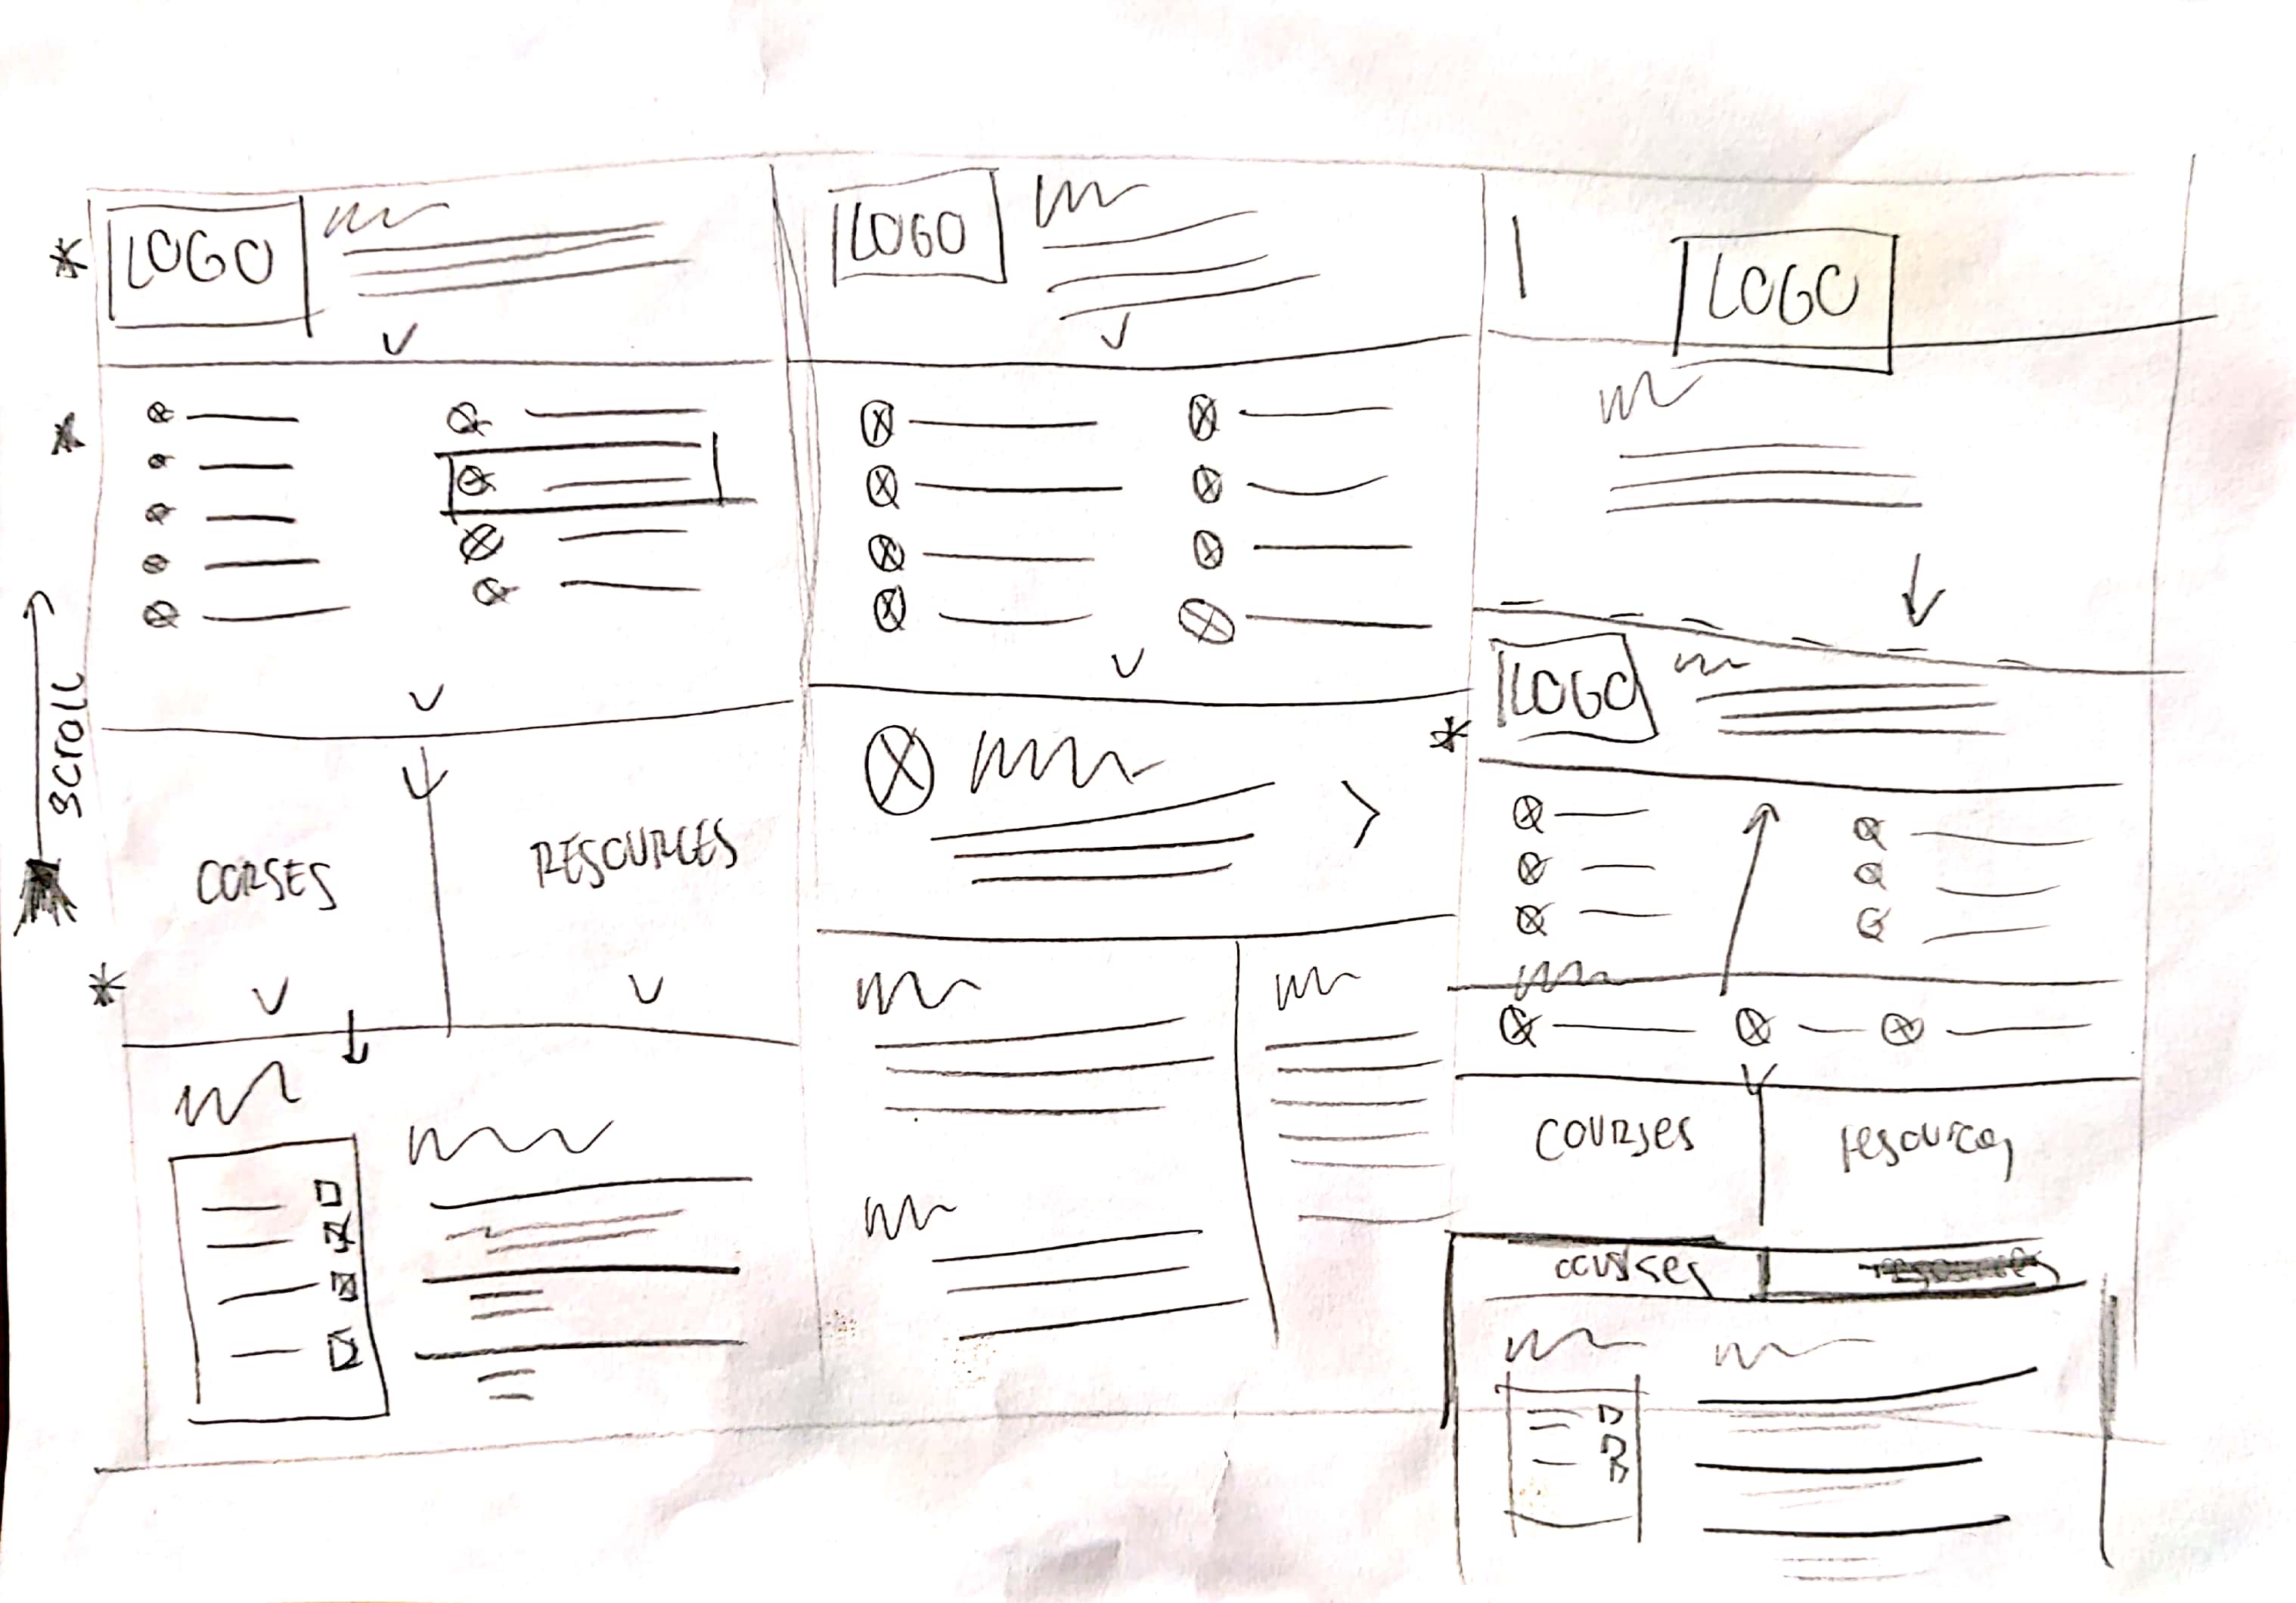 LOGO
scroll
CORSES
RESOURCES
LOGO
LOGO
LOGO
courses
resources
courses
resources